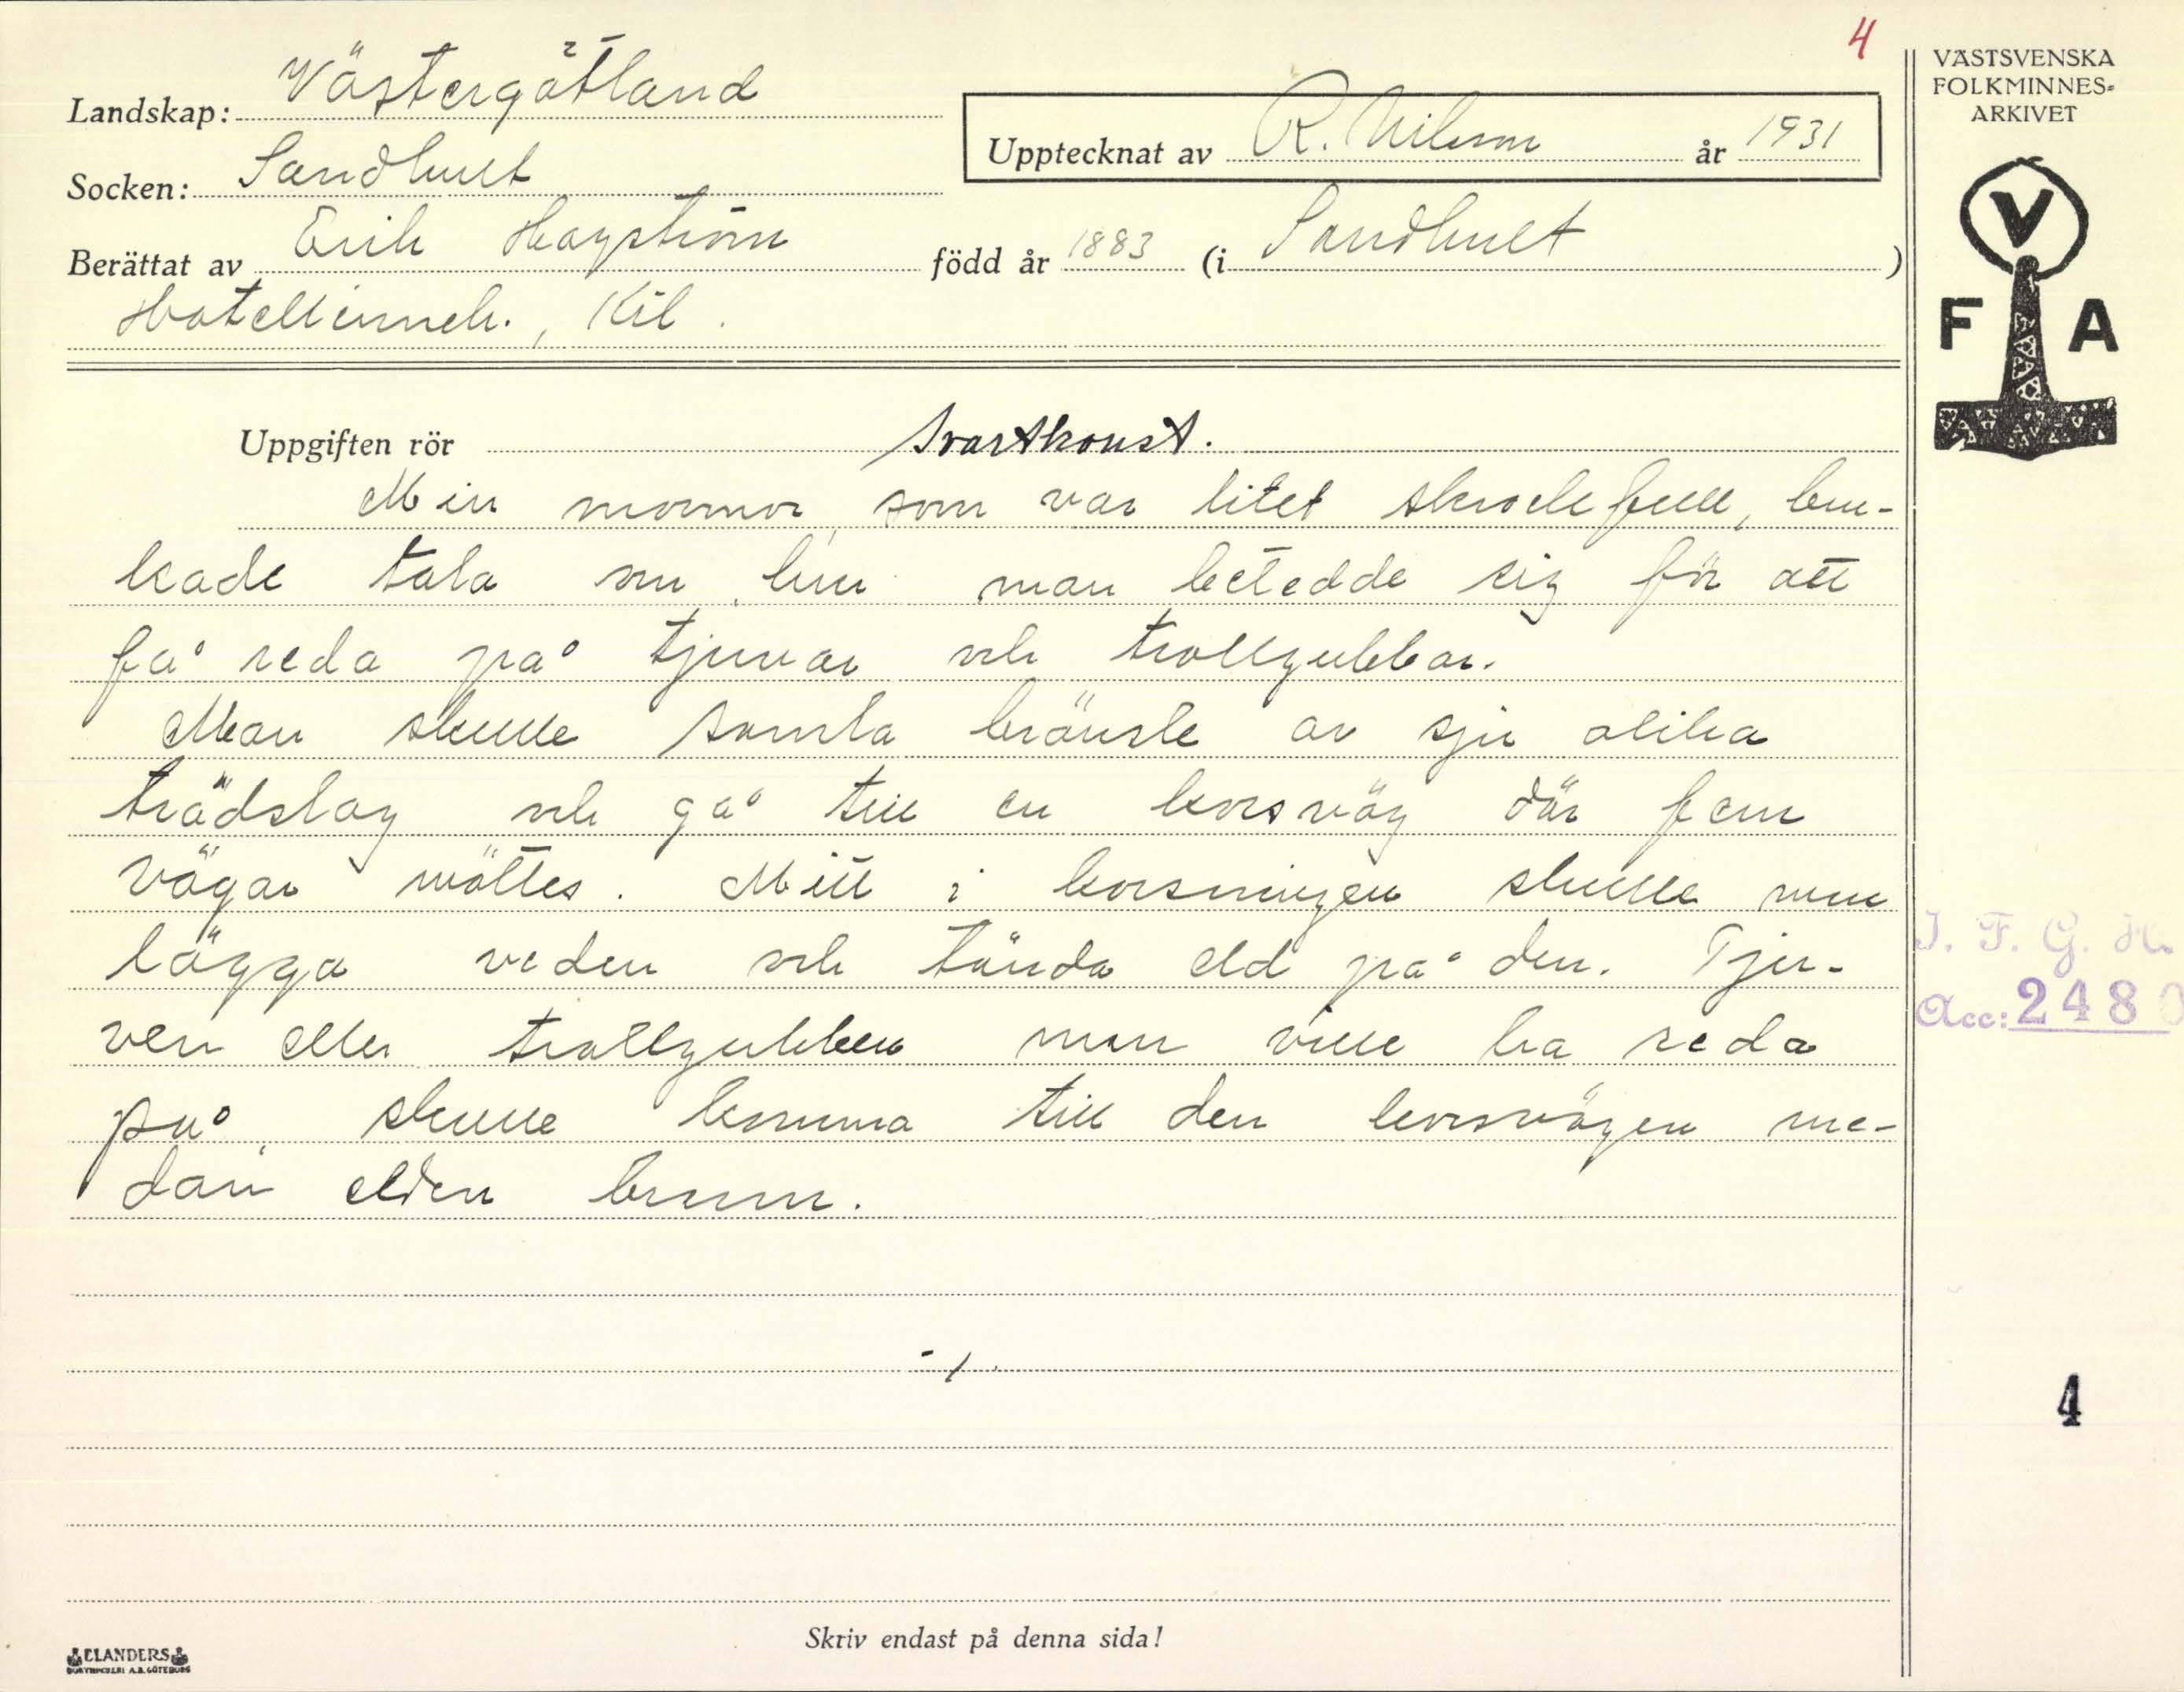 4
VÄSTSVENSKA
FOLKMINNES-
ARKIVET
V
F A
Landskap: Västergötland
Upptecknat av R. Nilsson år 1931
Socken: Sandhult
Berättat av Erik Hagström född år 1883 (i Sandhult)
Hotellinneh., Kil.
Uppgiften rör Svartkonst.
Min mormor, som var litet skrockfull, bru-
kade tala om hur man betedde sig för att
få reda på tjuvar och trollgubbar.
Man skulle samla bränsle av sju olika
trädslag och gå till en korsväg där fem
vägar möttes. Mitt i korsningen skulle man
lägga veden och tända eld på den. Tju-
ven eller trollgubben man ville ha reda
på, skulle komma till den korsvägen me-
dan elden brann.
I. F. G. H.
Acc: 2480
4
-/.
Skriv endast på denna sida!
ELANDERS
BOKTRYCKERI A.B. GÖTEBORG